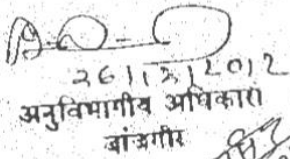 26/12/2012
अनुविभागीय अधिकारी
जांजगीर